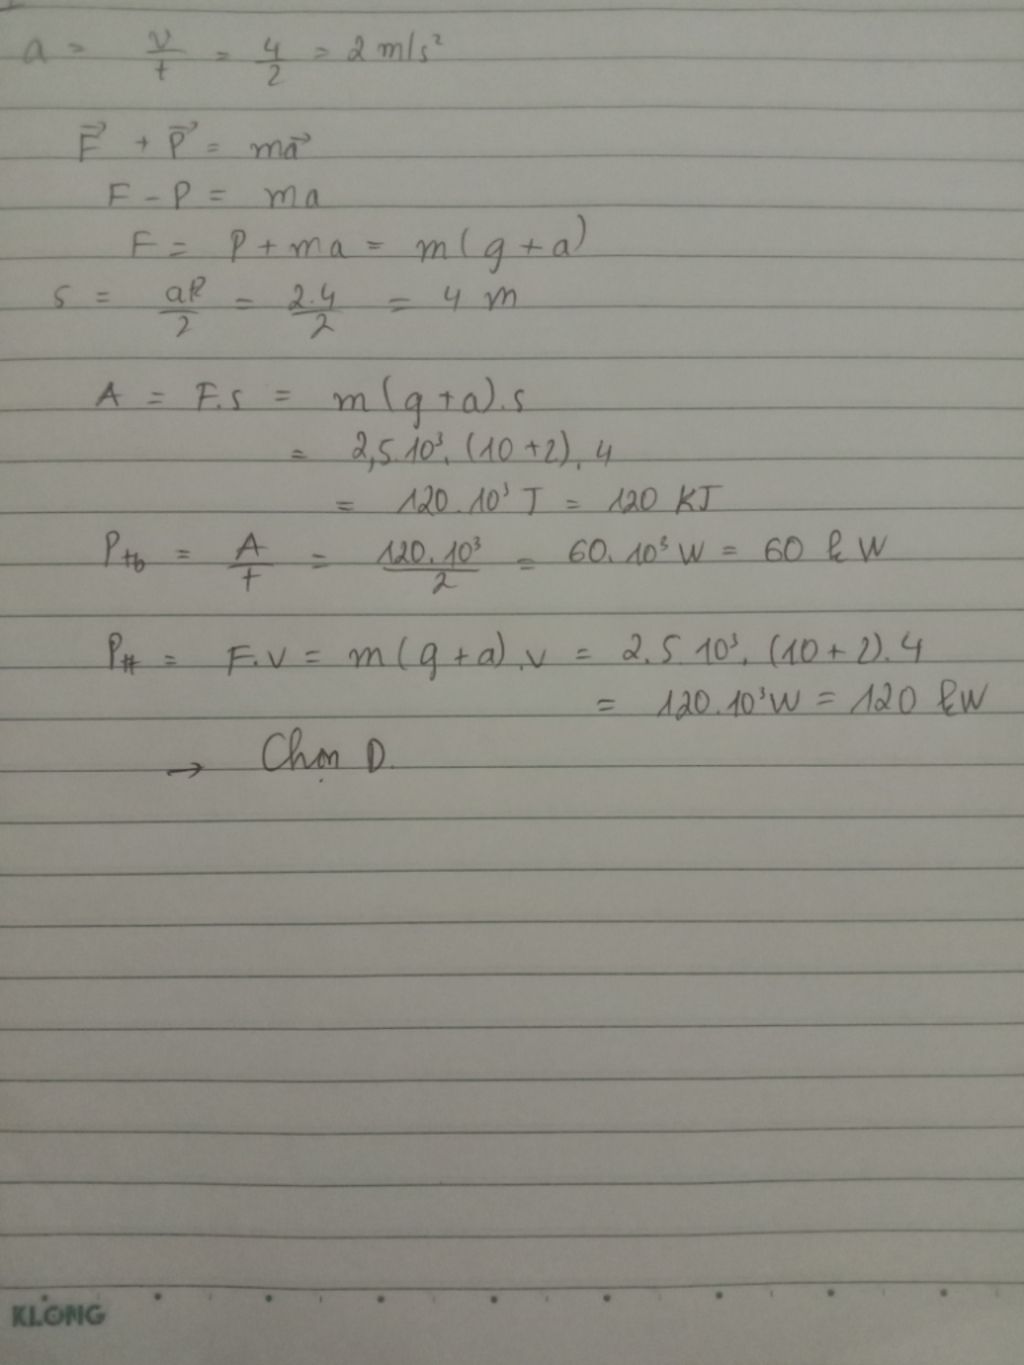 a = v/t = 4/2 = 2 m/s²
F⃗ + P⃗ = ma⃗
F - P = ma
F = P + ma = m(g + a)
s = at²/2 = 2.4/2 = 4 m
A = F.s = m(g + a).s
= 2,5.10³.(10 + 2).4
= 120.10³ J = 120 KJ
Ptb = A/t = 120.10³/2 = 60.10³ W = 60 kW
Ptt = F.v = m(g + a).v = 2,5.10³.(10 + 2).4
= 120.10³ W = 120 kW
→ Chọn D.
KLONG